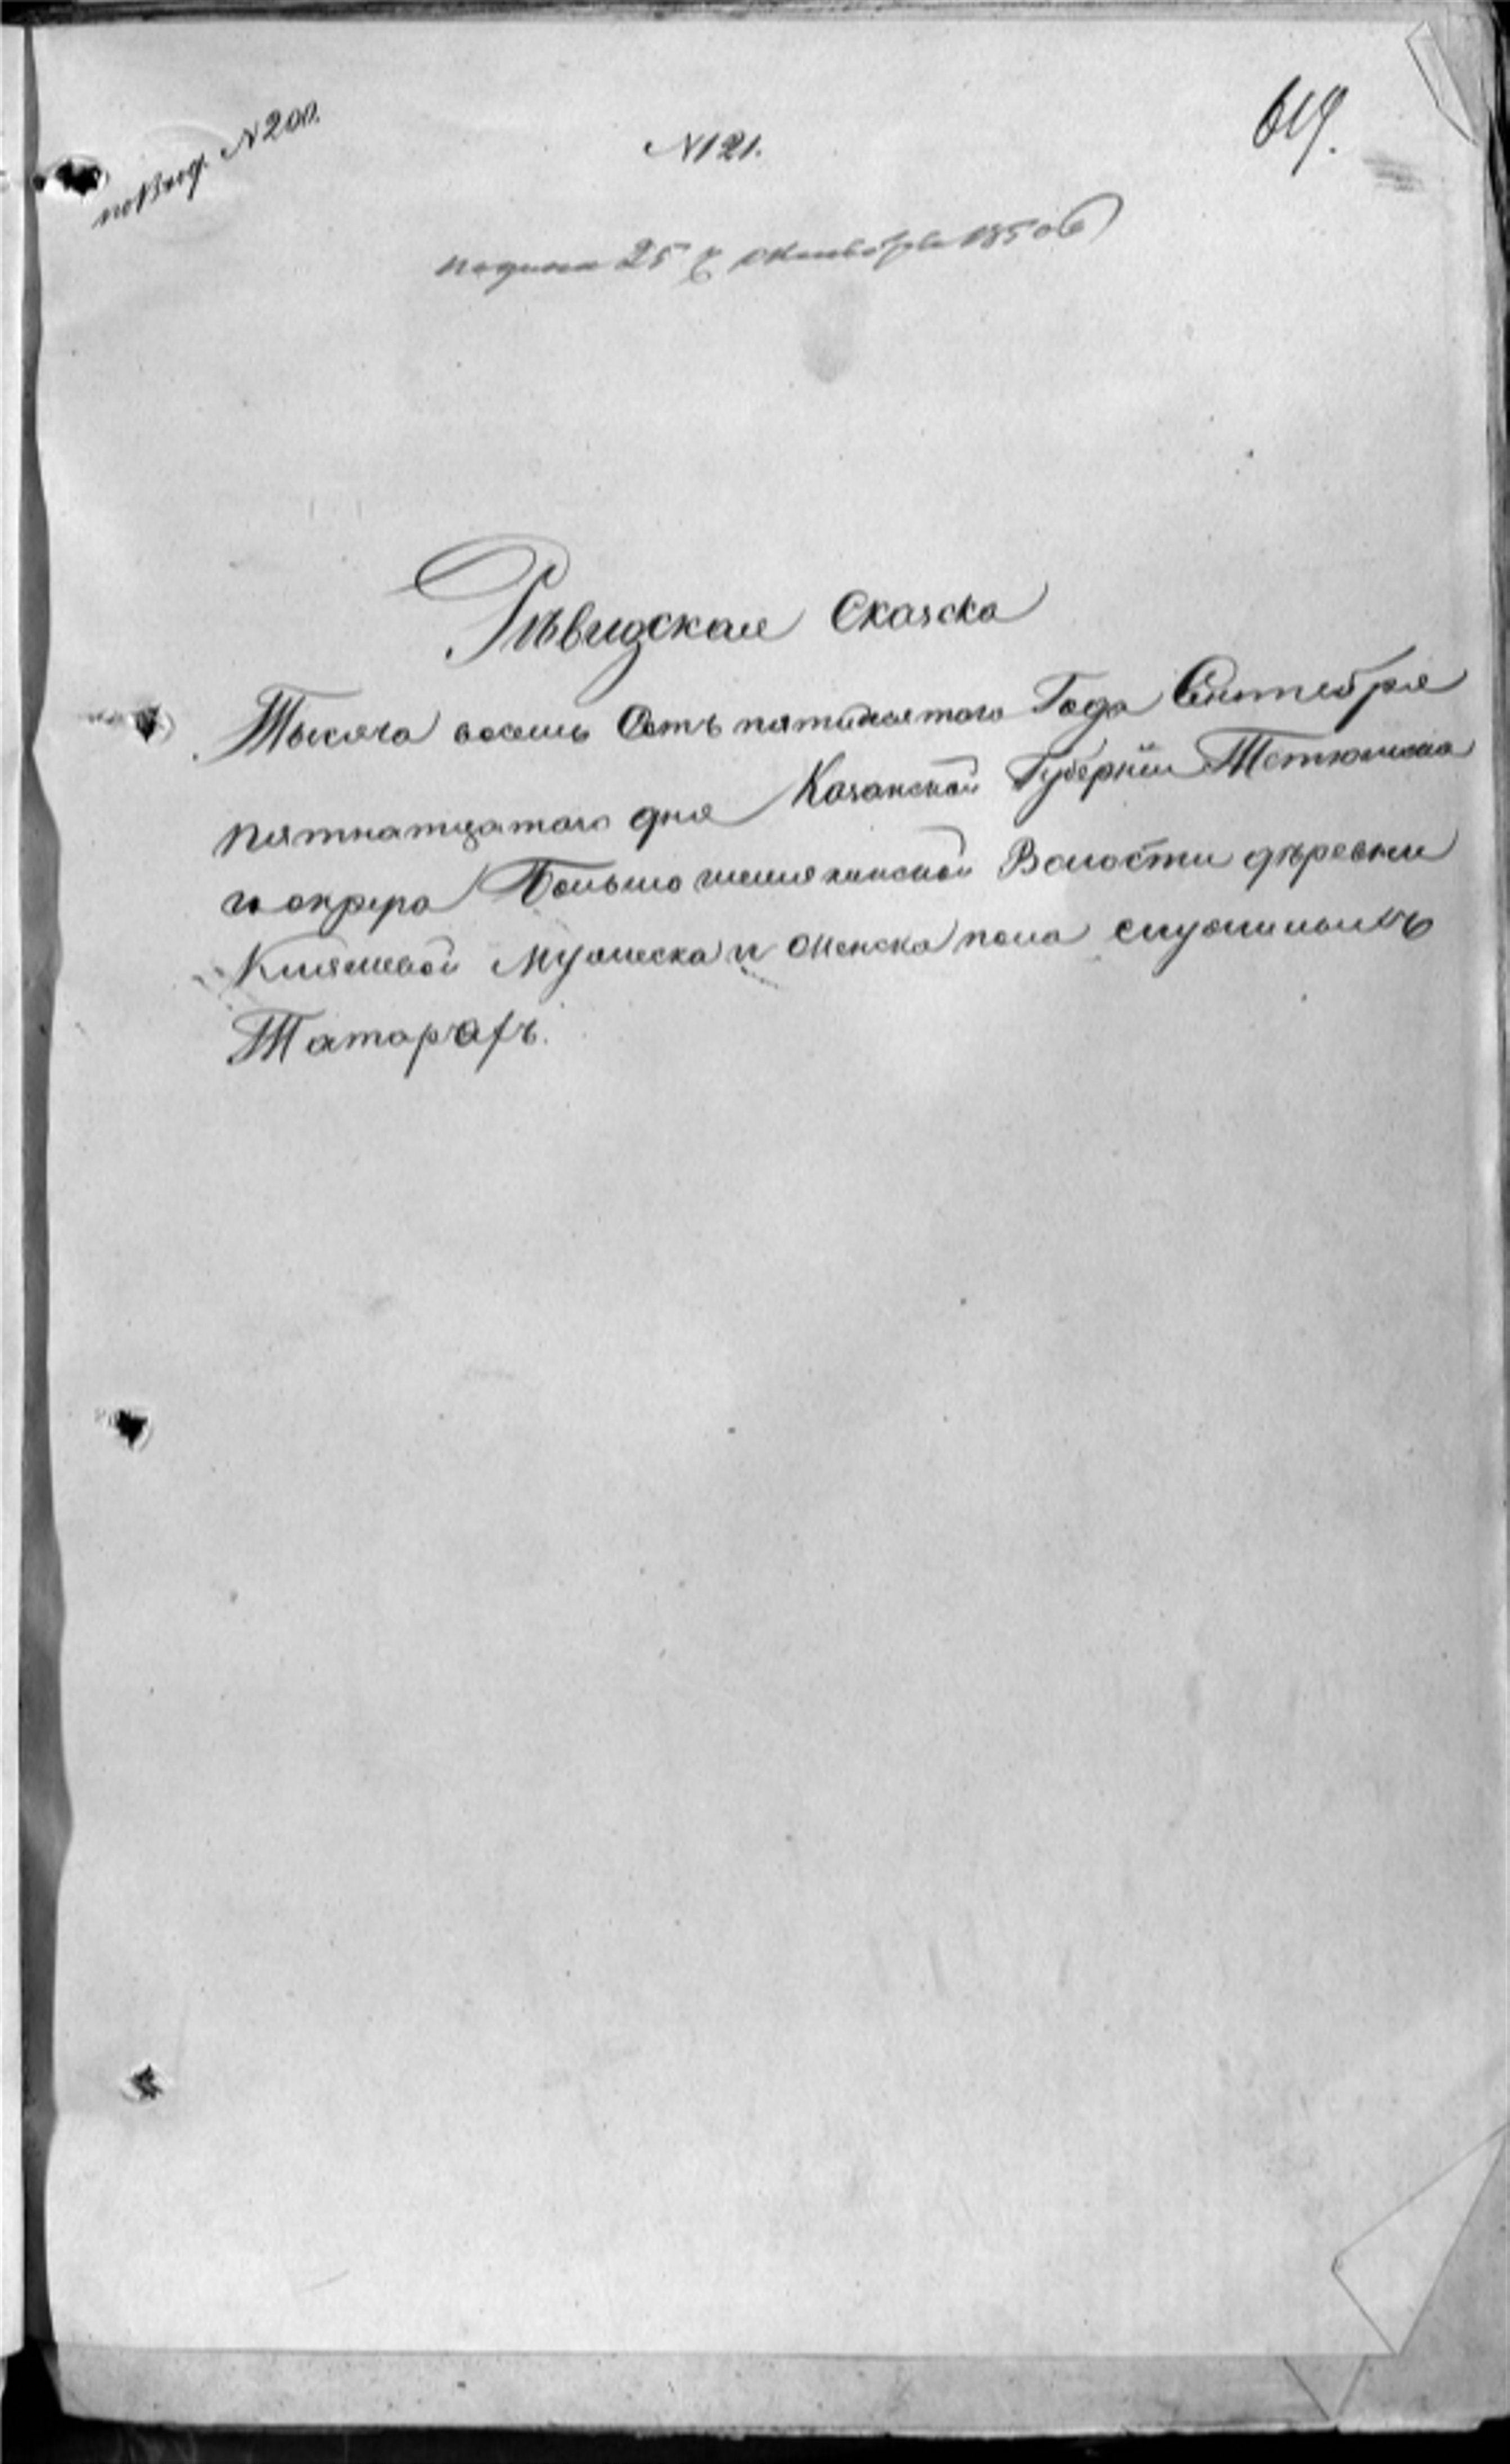 по Вход. N 200.
N 121.
619.
подана 25 Октября 1850
Рѣвизская Скаска
Тысяча восемь Сотъ пятидесятого Года Сентебря
пятнатцатого дня Казанской Губернiи Тетюшска
го округа Большо шемякинской Волости дѣревни
Киляшевой Мужеска и женска пола служилыхъ
Татарахъ.